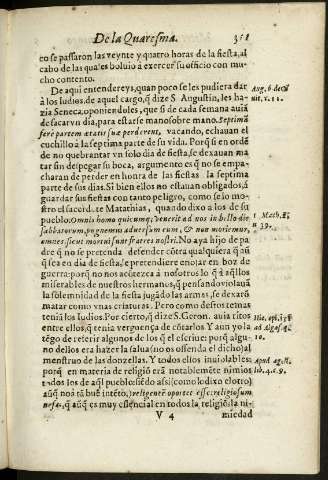 De la Quaresma.
co se passaron las veynte y quatro horas de la fiesta, al
cabo de las quales boluio â exercer su officio con mu-
cho contento.
De aqui entendereys, quan poco se les pudiera dar
à los Iudios, de aquel cargo, q̃ dize S. Augustin, les ha-
zia Seneca, oponiendoles, que si de cada semana auiã
de sacar vn dia, para estarse mano sobre mano. Septimã
ferè partem ætatis suæ perderent, vacando, echauan el
cuchillo à la septima parte de su vida. Porq̃ si en ordẽ
de no quebrantar vn solo dia de fiesta, se dexauan ma-
tar sin despegar su boca, argumento es q̃ no se empa-
charan de perder en honra de las fiestas la septima
parte de sus dias. Si bien ellos no estauan obligados, à
guardar sus fiestas con tanto peligro, como se lo mo-
stro el sacerd. te Matathias, quando dixo a los de su
pueblo. Omnis homo quicumq; venerit ad nos in bello die
sabbatorum, pugnemus aduersum eum, & non moriemur,
omnes sicut mortui sunt fratres nostri. No aya hijo de pa
dre q̃ no se pretenda defender côtra qualquiera q̃ aũ
q̃ sea en dia de fiesta, se pretendiere enojar en boz de
guerra: porq̃ no nos acôtezca à nosotros lo q̃ à aq̃llos
miserables de nuestros hermanos, q̃ pensando violauã
la solemnidad de la fiesta jugãdo las armas, se dexarõ
matar como vnas criaturas. Pero como destos temas
teniã los Iudios. Por cierto, q̃ dize S. Geron. auia ritos
entre ellos, q̃ tenia verguença de côtarlos. Y aun yo la
tẽgo de referir algunos de los q̃ el escriue: porq̃ algu-
no dellos era hazer la salua (no os ofenda el dicho) al
menstruo de las donzellas. Y todos ellos inuiolables:
porq̃ en materia de religiõ erã notablemẽte nimios
todos los de aq̃l pueblo: siẽdo assi (como lo dixo el otro)
aũq̃ no à tã buẽ intẽto,) religentẽ oportet esse: religiosum
nefas, q̃ aũq̃ es muy essencial en todos la religiõ: la ni-
V 4
miedad
Aug. 6. de ci
uit. c. 11.
1. Mach. 2.
n 39.
Hie. epi. 151
ad Algas. q.
10.
Apud ag. ll.
lib. 4. c. 9.